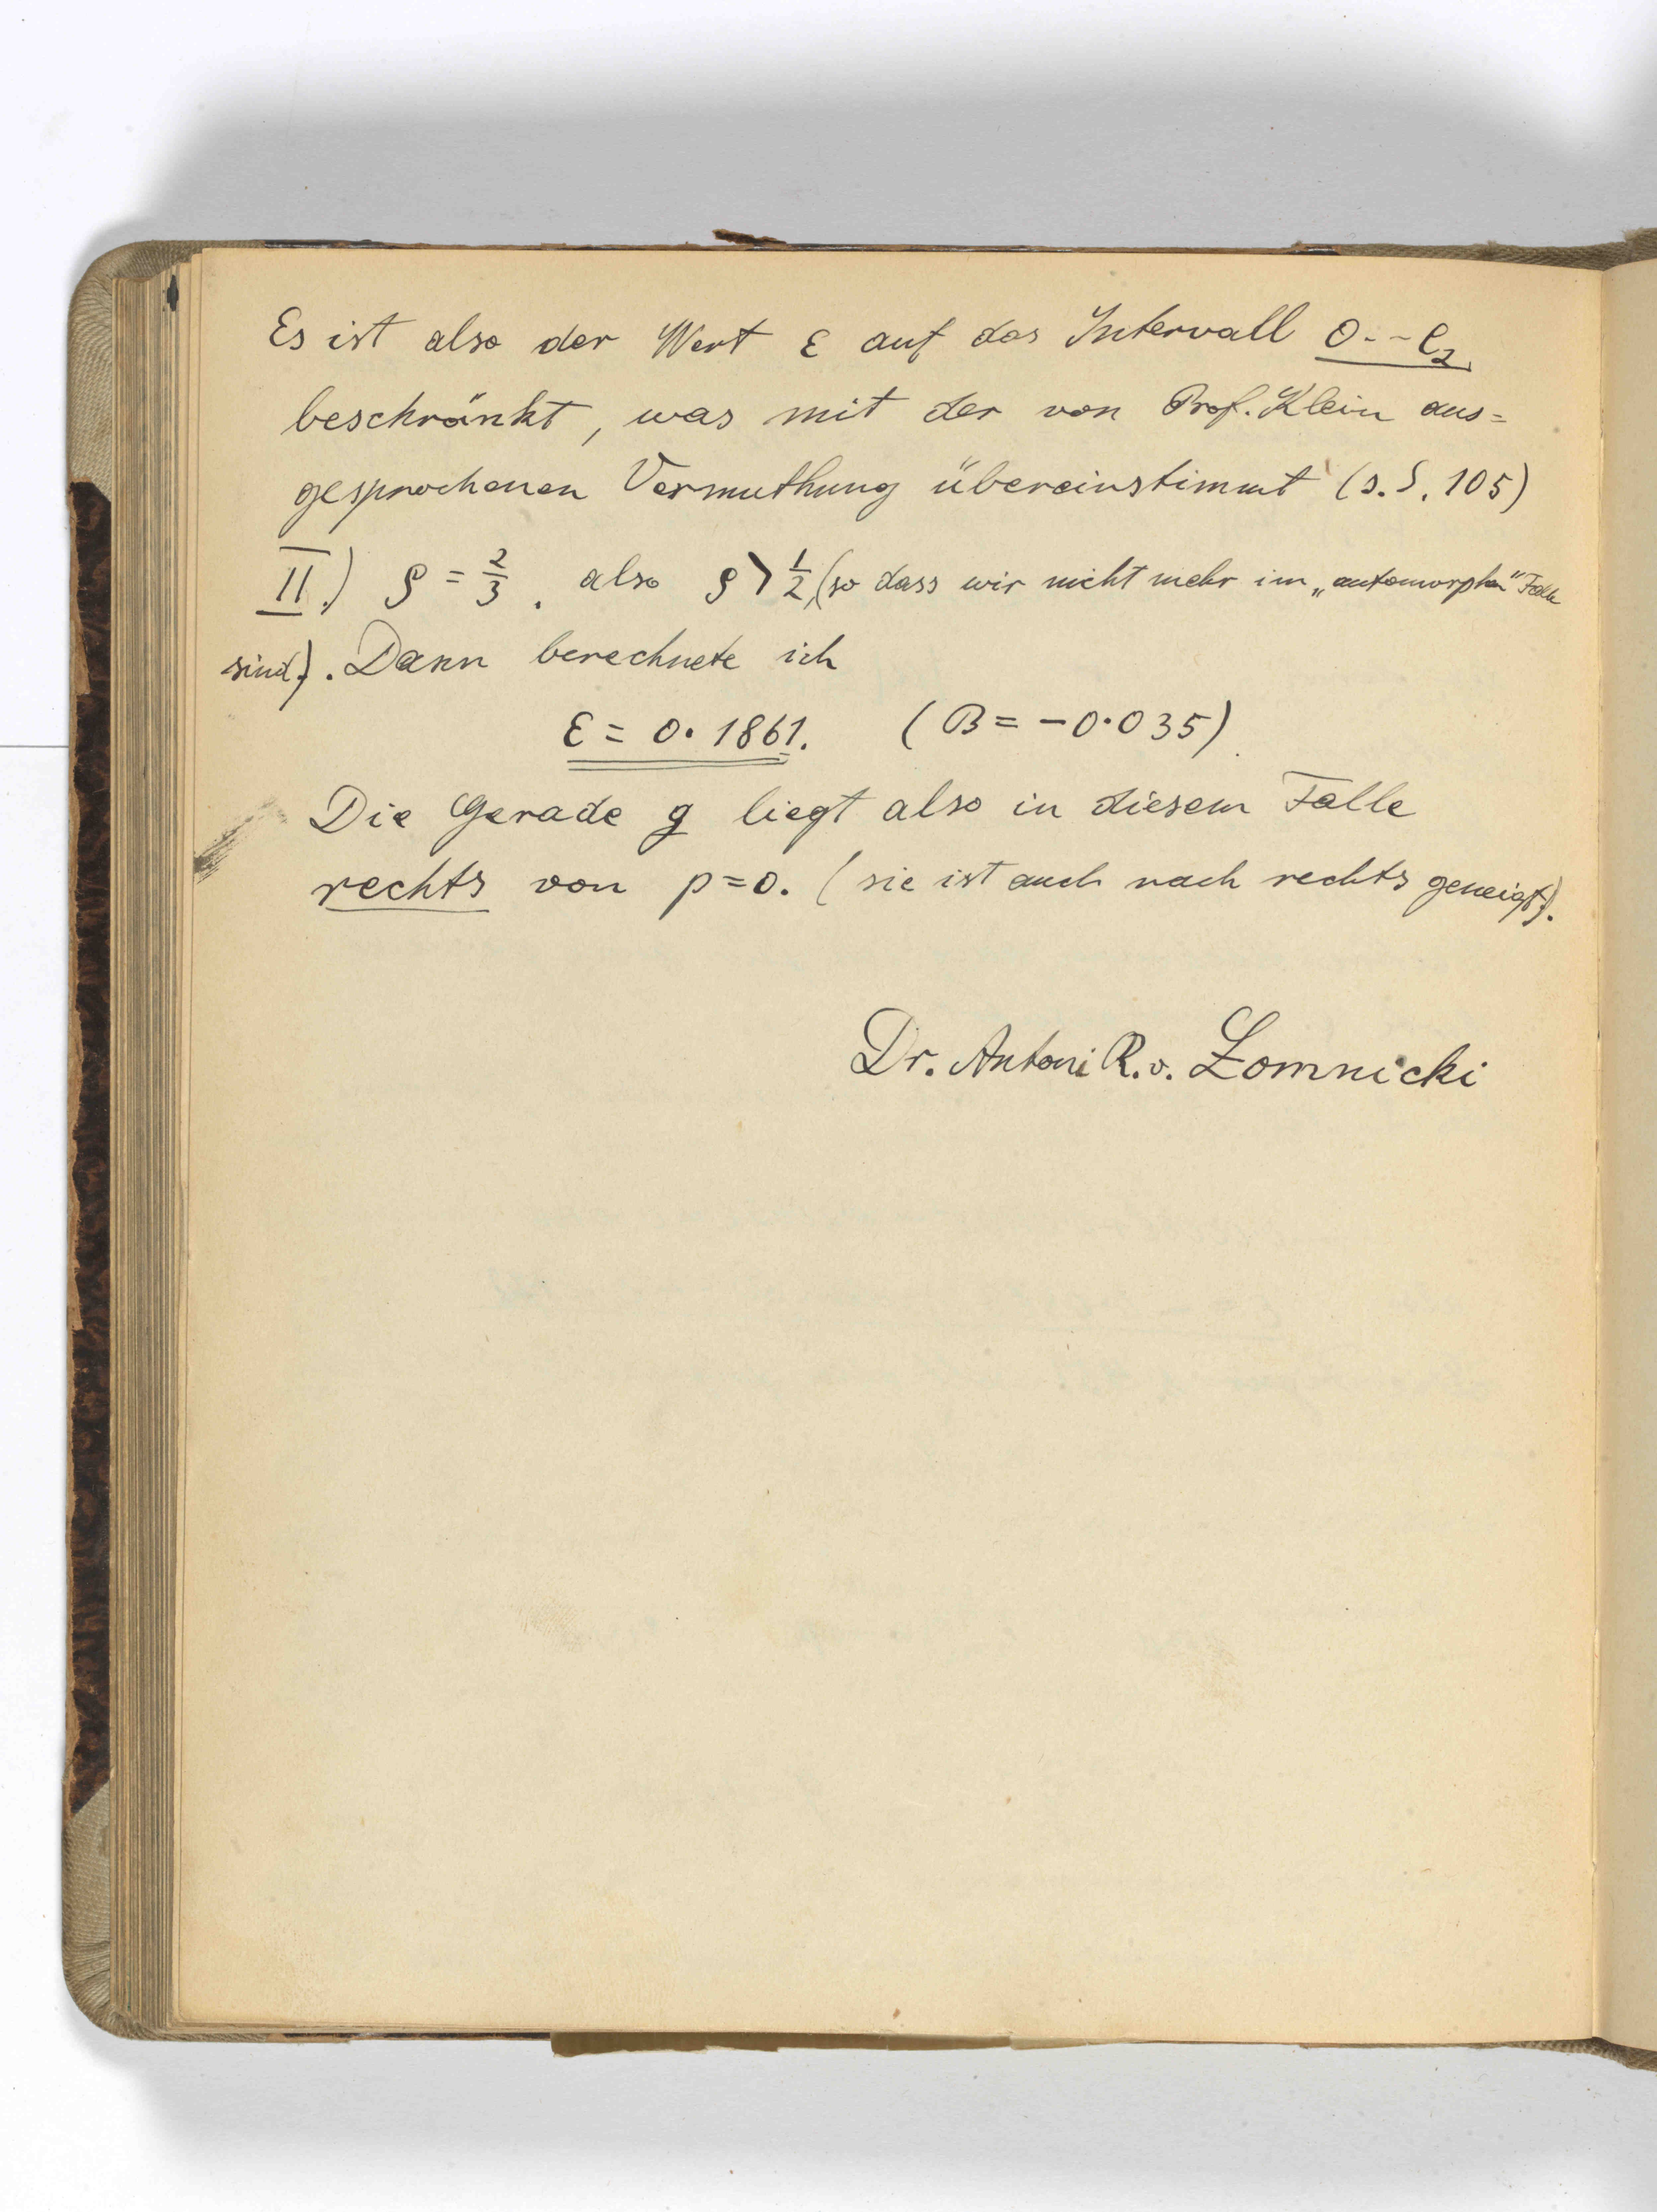 Es ist also der Wert ε auf das Intervall 0--e₂
beschränkt, was mit der von Prof. Klein aus=
gesprochenen Vermuthung übereinstimmt (s. S. 105)
II.) ϱ = 2/3, also ϱ > 1/2, (so dass wir nicht mehr im „automorphen" Falle
sind). Dann berechnete ich
ε = 0.1861. (B = -0.035).
Die Gerade g liegt also in diesem Falle
rechts von p=0. (sie ist auch nach rechts geneigt).
Dr. Antoni R. v. Łomnicki